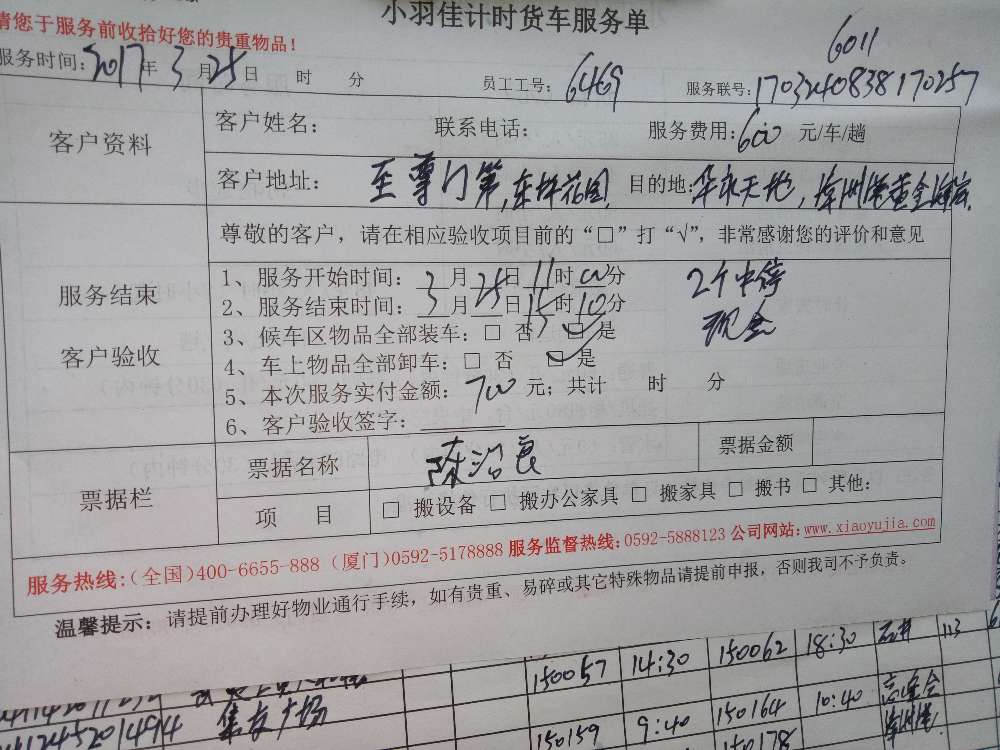 小羽佳计时货车服务单
请您于服务前收拾好您的贵重物品！
6011
服务时间：2017年3月25日 时 分 员工工号：6469 服务联号：1703240838170257
客户资料
客户姓名： 联系电话： 服务费用：600 元/车/趟
客户地址：至尊门第，东坪花园 目的地：华永天地，漳州港黄金海岸
尊敬的客户，请在相应验收项目前的“□”打“√”，非常感谢您的评价和意见
服务结束
客户验收
1、服务开始时间：3月25日11时00分 2个中转
2、服务结束时间：3月25日15时10分 现金
3、候车区物品全部装车：□ 否 ☑ 是
4、车上物品全部卸车：□ 否 ☑ 是
5、本次服务实付金额：700 元；共计 时 分
6、客户验收签字：
票据栏
票据名称 票据金额
项 目 □ 搬设备 □ 搬办公家具 □ 搬家具 □ 搬书 □ 其他：
服务热线：（全国）400-6655-888（厦门）0592-5178888 服务监督热线：0592-5888123 公司网站：www.xiaoyujia.com
温馨提示：请提前办理好物业通行手续，如有贵重、易碎或其它特殊物品请提前申报，否则我司不予负责。
150057 14:30 150062 18:30 石井 113
集友广场
150159 9:40 150164 10:40
150178